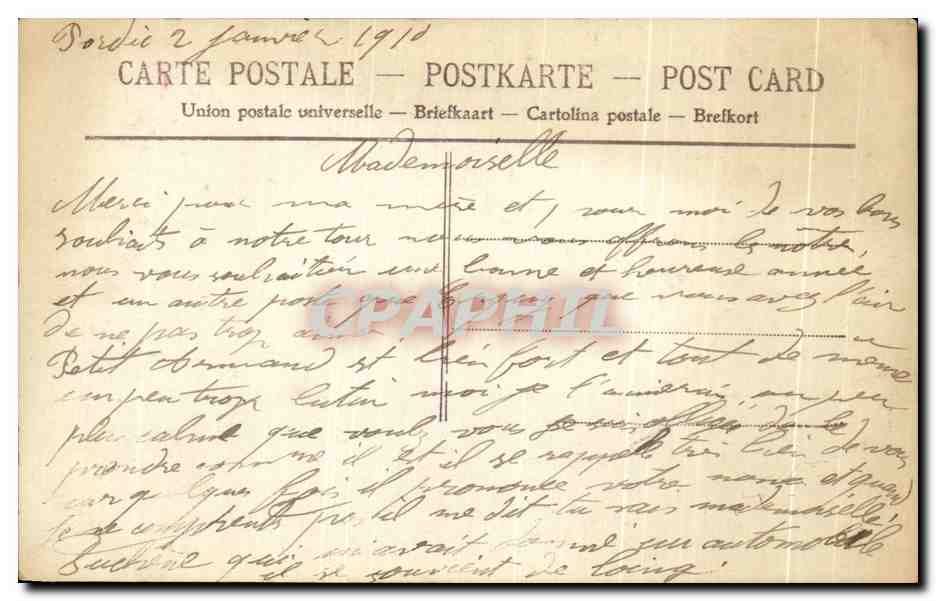 Pordic 2 janvier 1910
CARTE POSTALE — POSTKARTE — POST CARD
Union postale universelle — Briefkaart — Cartolina postale — Brefkort
Mademoiselle
Merci pour ma mère et, pour moi de vos bons
souhaits à notre tour nous vous offrons les nôtre,
nous vous souhaitien une bonne et heureuse année
et un autre que que vous avez l'air
de ne pas trop
CPAPHIL
Petit Armand est bien fort et tout de meme
un peu trop lutin moi je l'aimerai un peu
plus calme que voulez vous je suis obligé de le
prendre comme il est il se rappelle très bien de vous
car quelques fois il prononce votre nome et quand
je ne comprends pas il me dit tu sais mademoiselle
Duchêne qui m'avait donné un automobile
il se souvient de loing.